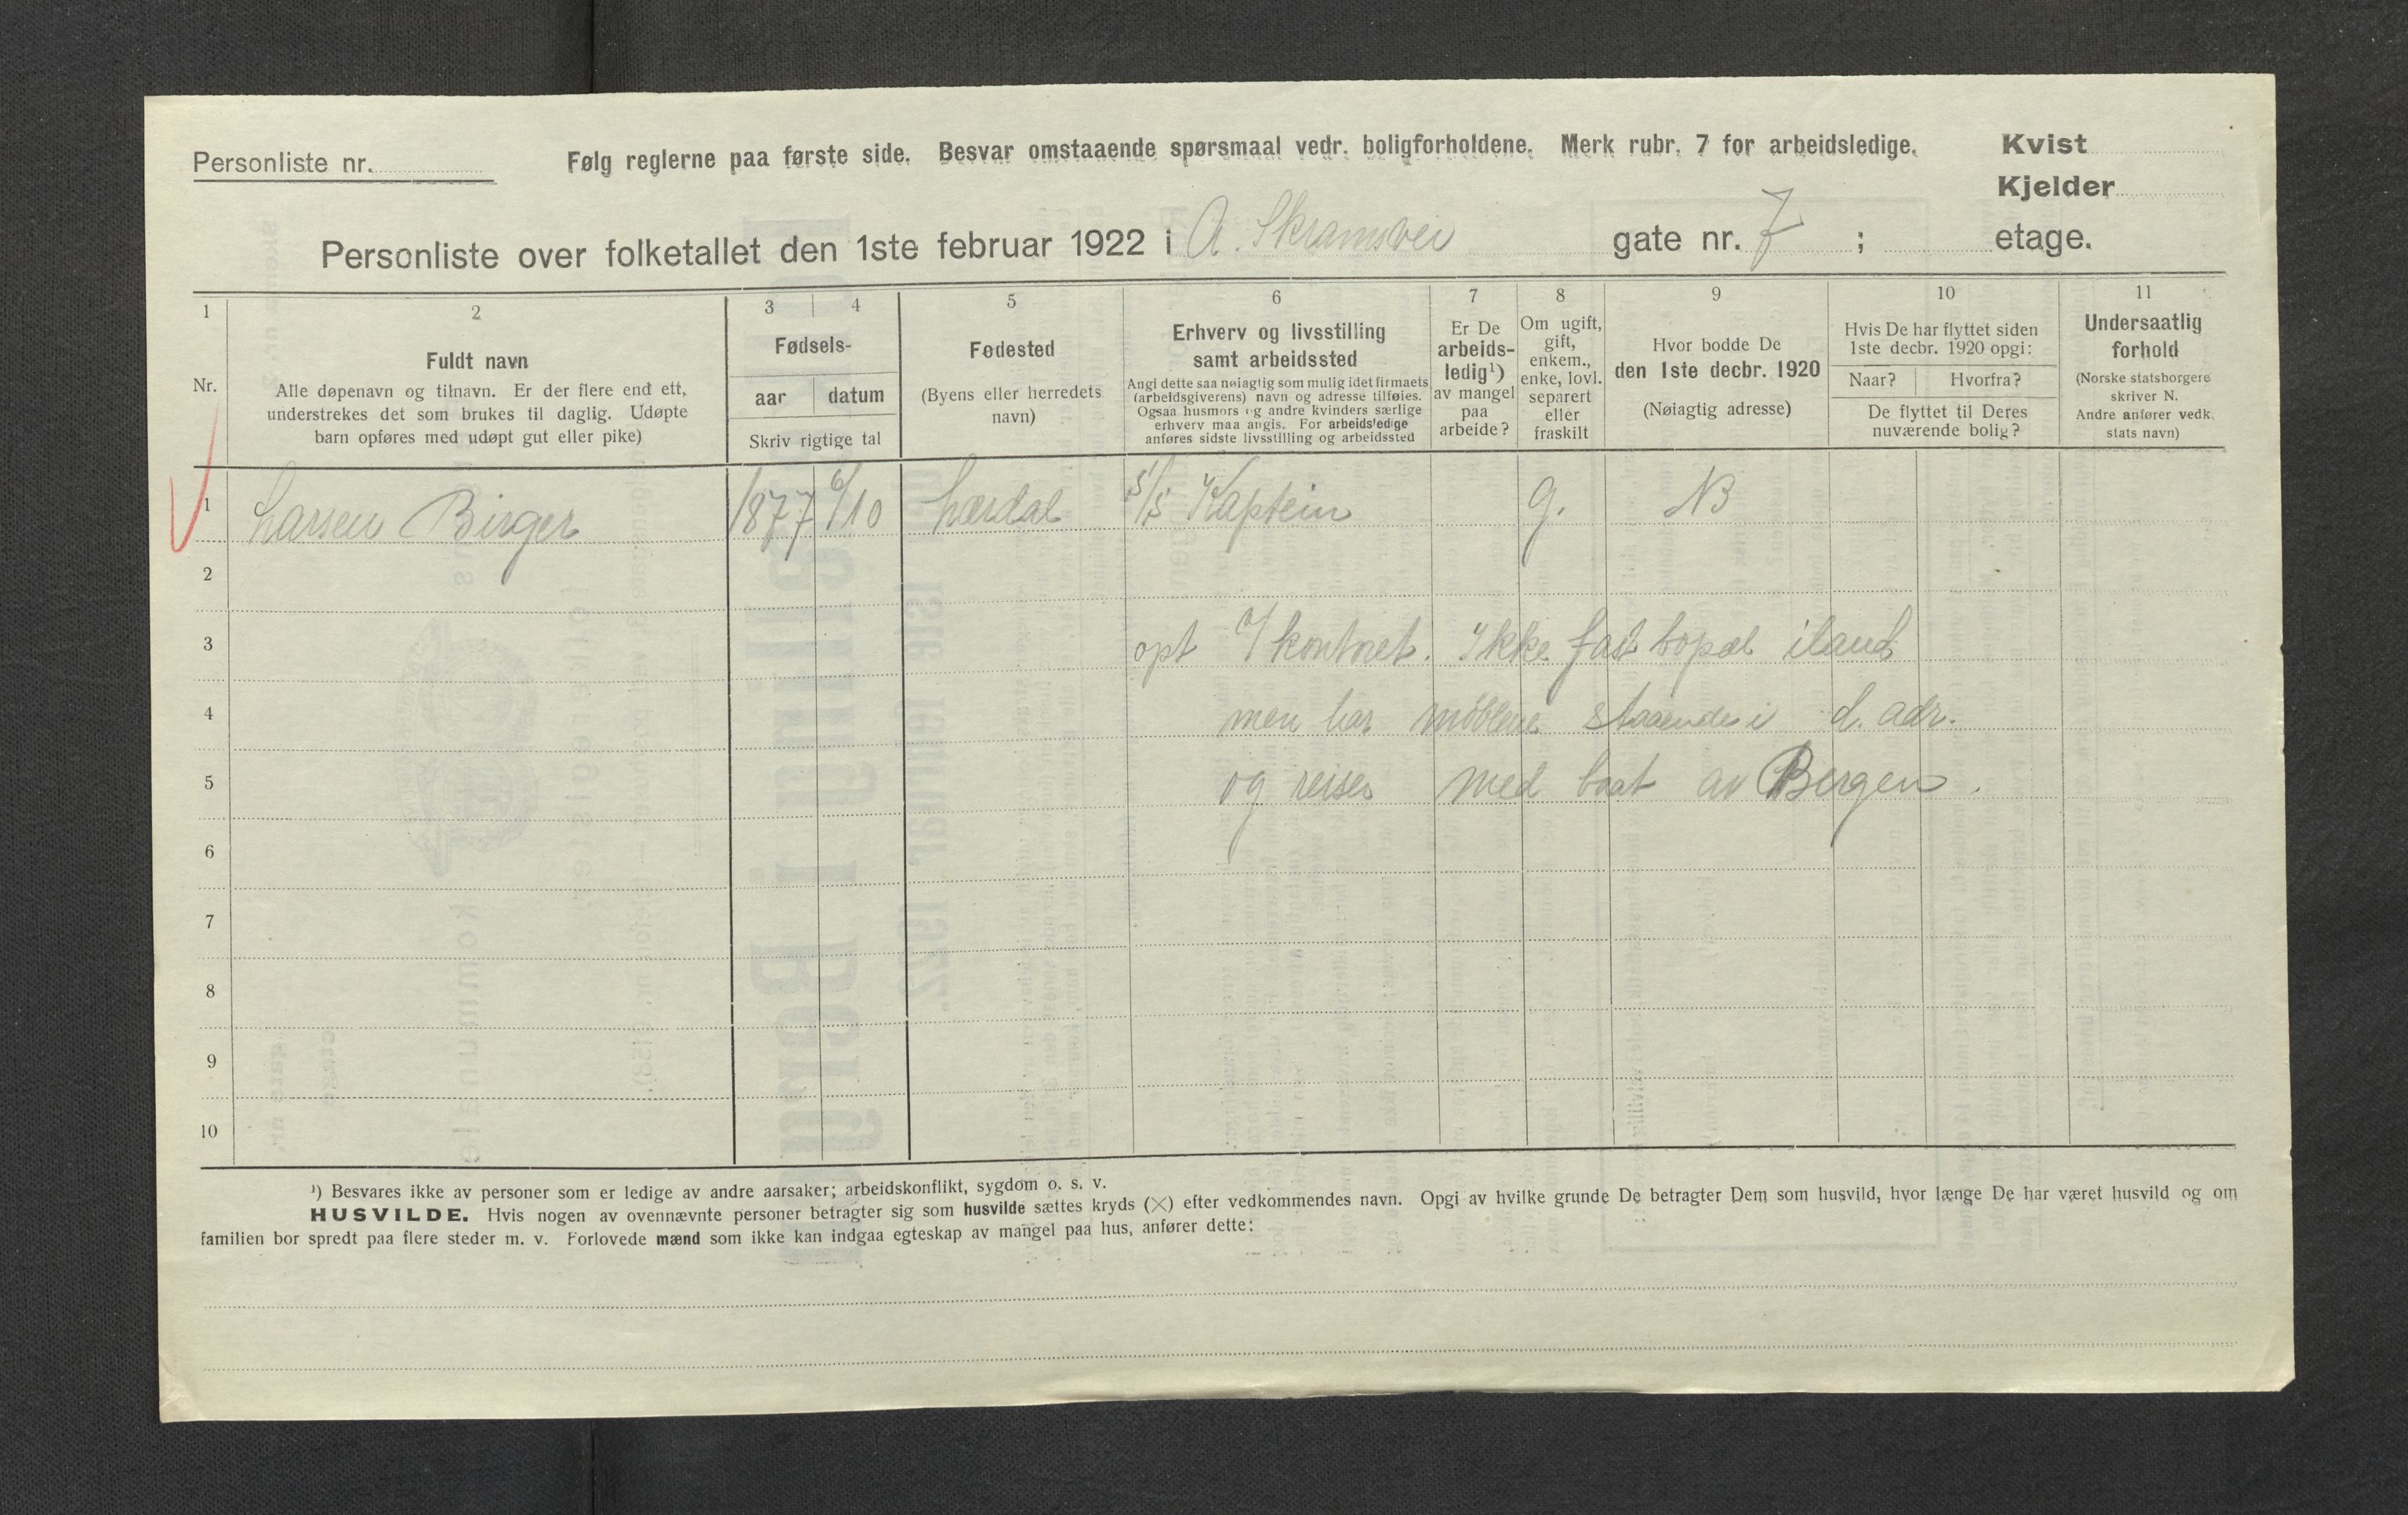 Personliste nr.
Følg reglerne paa første side. Besvar omstaaende spørsmaal vedr. boligforholdene. Merk rubr. 7 for arbeidsledige.
Kvist
Kjelder
Personliste over folketallet den 1ste februar 1922 i A. Skramsvei gate nr. 7 ; etage.
1 2 3 4 5 6 7 8 9 10 11
Nr.
Fuldt navn
Alle døpenavn og tilnavn. Er der flere end ett,
understrekes det som brukes til daglig. Udøpte
barn opføres med udøpt gut eller pike)
Fødsels-
aar datum
Skriv rigtige tal
Fødested
(Byens eller herredets
navn)
Erhverv og livsstilling
samt arbeidssted
Angi dette saa nøiagtig som mulig idet firmaets
(arbeidsgiverens) navn og adresse tilføies.
Ogsaa husmors og andre kvinders særlige
erhverv maa angis. For arbeidsledige
anføres sidste livsstilling og arbeidssted
Er De
arbeids-
ledig¹)
av mangel
paa
arbeide?
Om ugift,
gift,
enkem.,
enke, lovl.
separert
eller
fraskilt
Hvor bodde De
den 1ste decbr. 1920
(Nøiagtig adresse)
Hvis De har flyttet siden
1ste decbr. 1920 opgi:
Naar? Hvorfra?
De flyttet til Deres
nuværende bolig?
Undersaatlig
forhold
(Norske statsborgere
skriver N.
Andre anfører vedk.
stats navn)
1 Larsen Birger 1877 6/10 Lærdal S/S Kaptein g. NB
2
3 opt i/kontoret. Ikke fast bopæl iland
4 men har møblene staaende i d. adr.
5 og reiser med baat av Bergen.
6
7
8
9
10
¹) Besvares ikke av personer som er ledige av andre aarsaker; arbeidskonflikt, sygdom o. s. v.
HUSVILDE. Hvis nogen av ovennævnte personer betragter sig som husvild sættes kryds (×) efter vedkommendes navn. Opgi av hvilke grunde De betragter Dem som husvild, hvor længe De har været husvild og om
familien bor spredt paa flere steder m. v. Forlovede mænd som ikke kan indgaa egteskap av mangel paa hus, anfører dette: